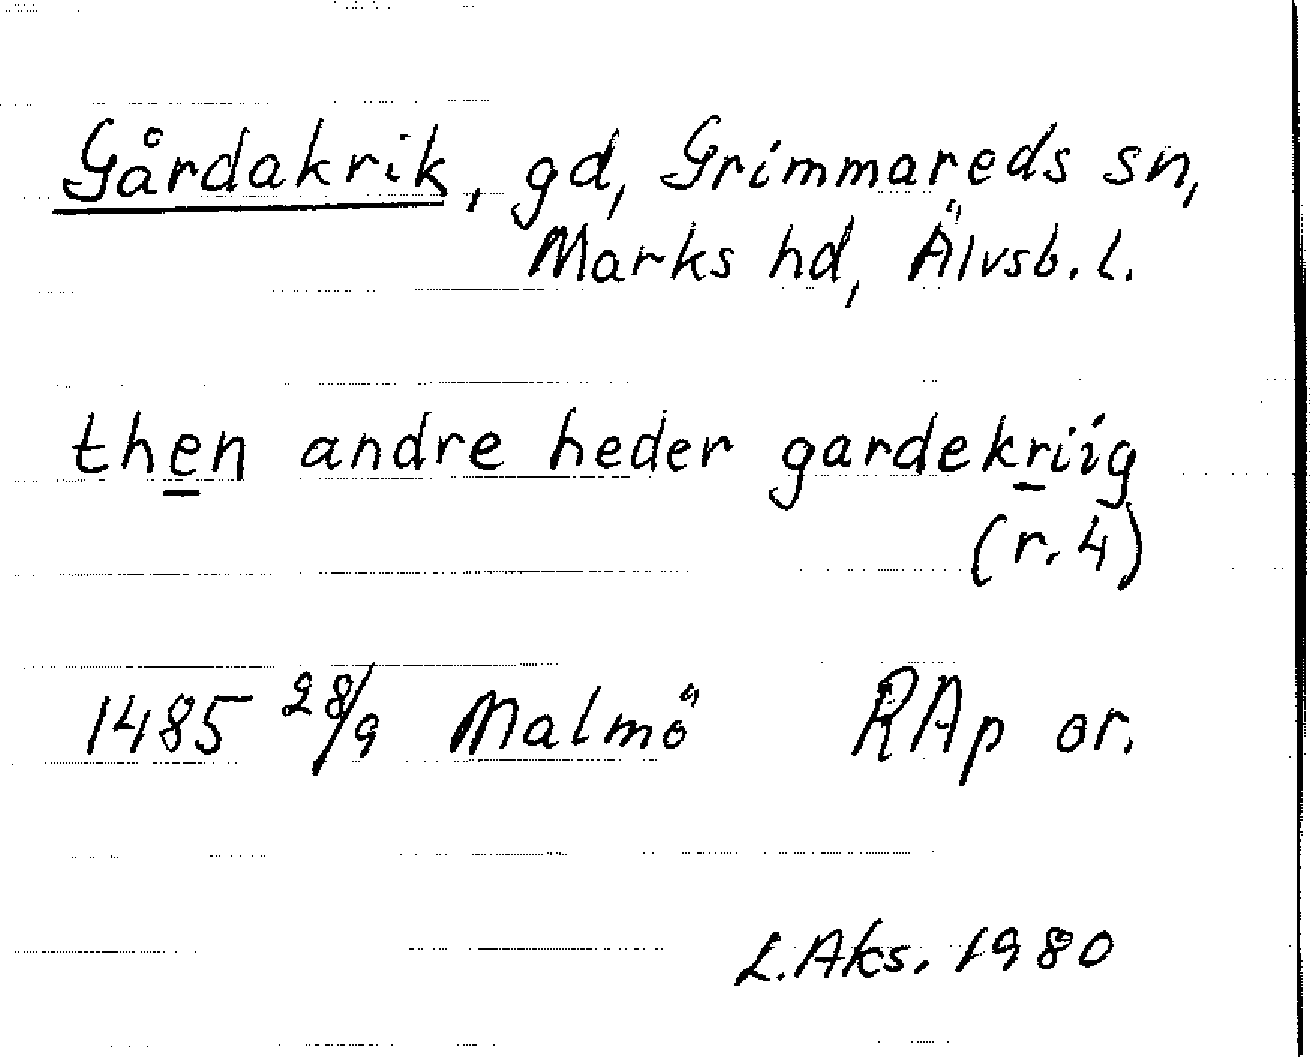 Gårdakrik, gd, Grimmareds sn,
Marks hd, Älvsb. l.
then andre heder gardekriig
(r. 4)
1485 28/9 Malmö RAp or.
L. Aks. 1980